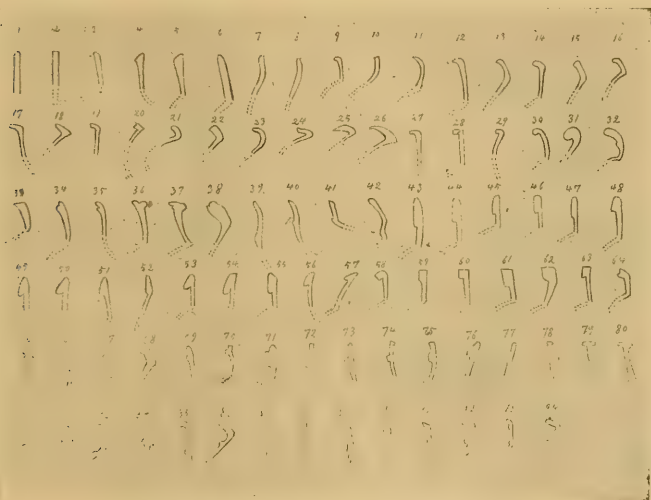 1 2 3 4 5 6 7 8 9 10 11 12 13 14 15 16
17 18 19 20 21 22 23 24 25 26 27 28 29 30 31 32
33 34 35 36 37 38 39 40 41 42 43 44 45 46 47 48
49 50 51 52 53 54 55 56 57 58 59 60 61 62 63 64
69 70 71 72 73 74 75 76 77 78 79 80